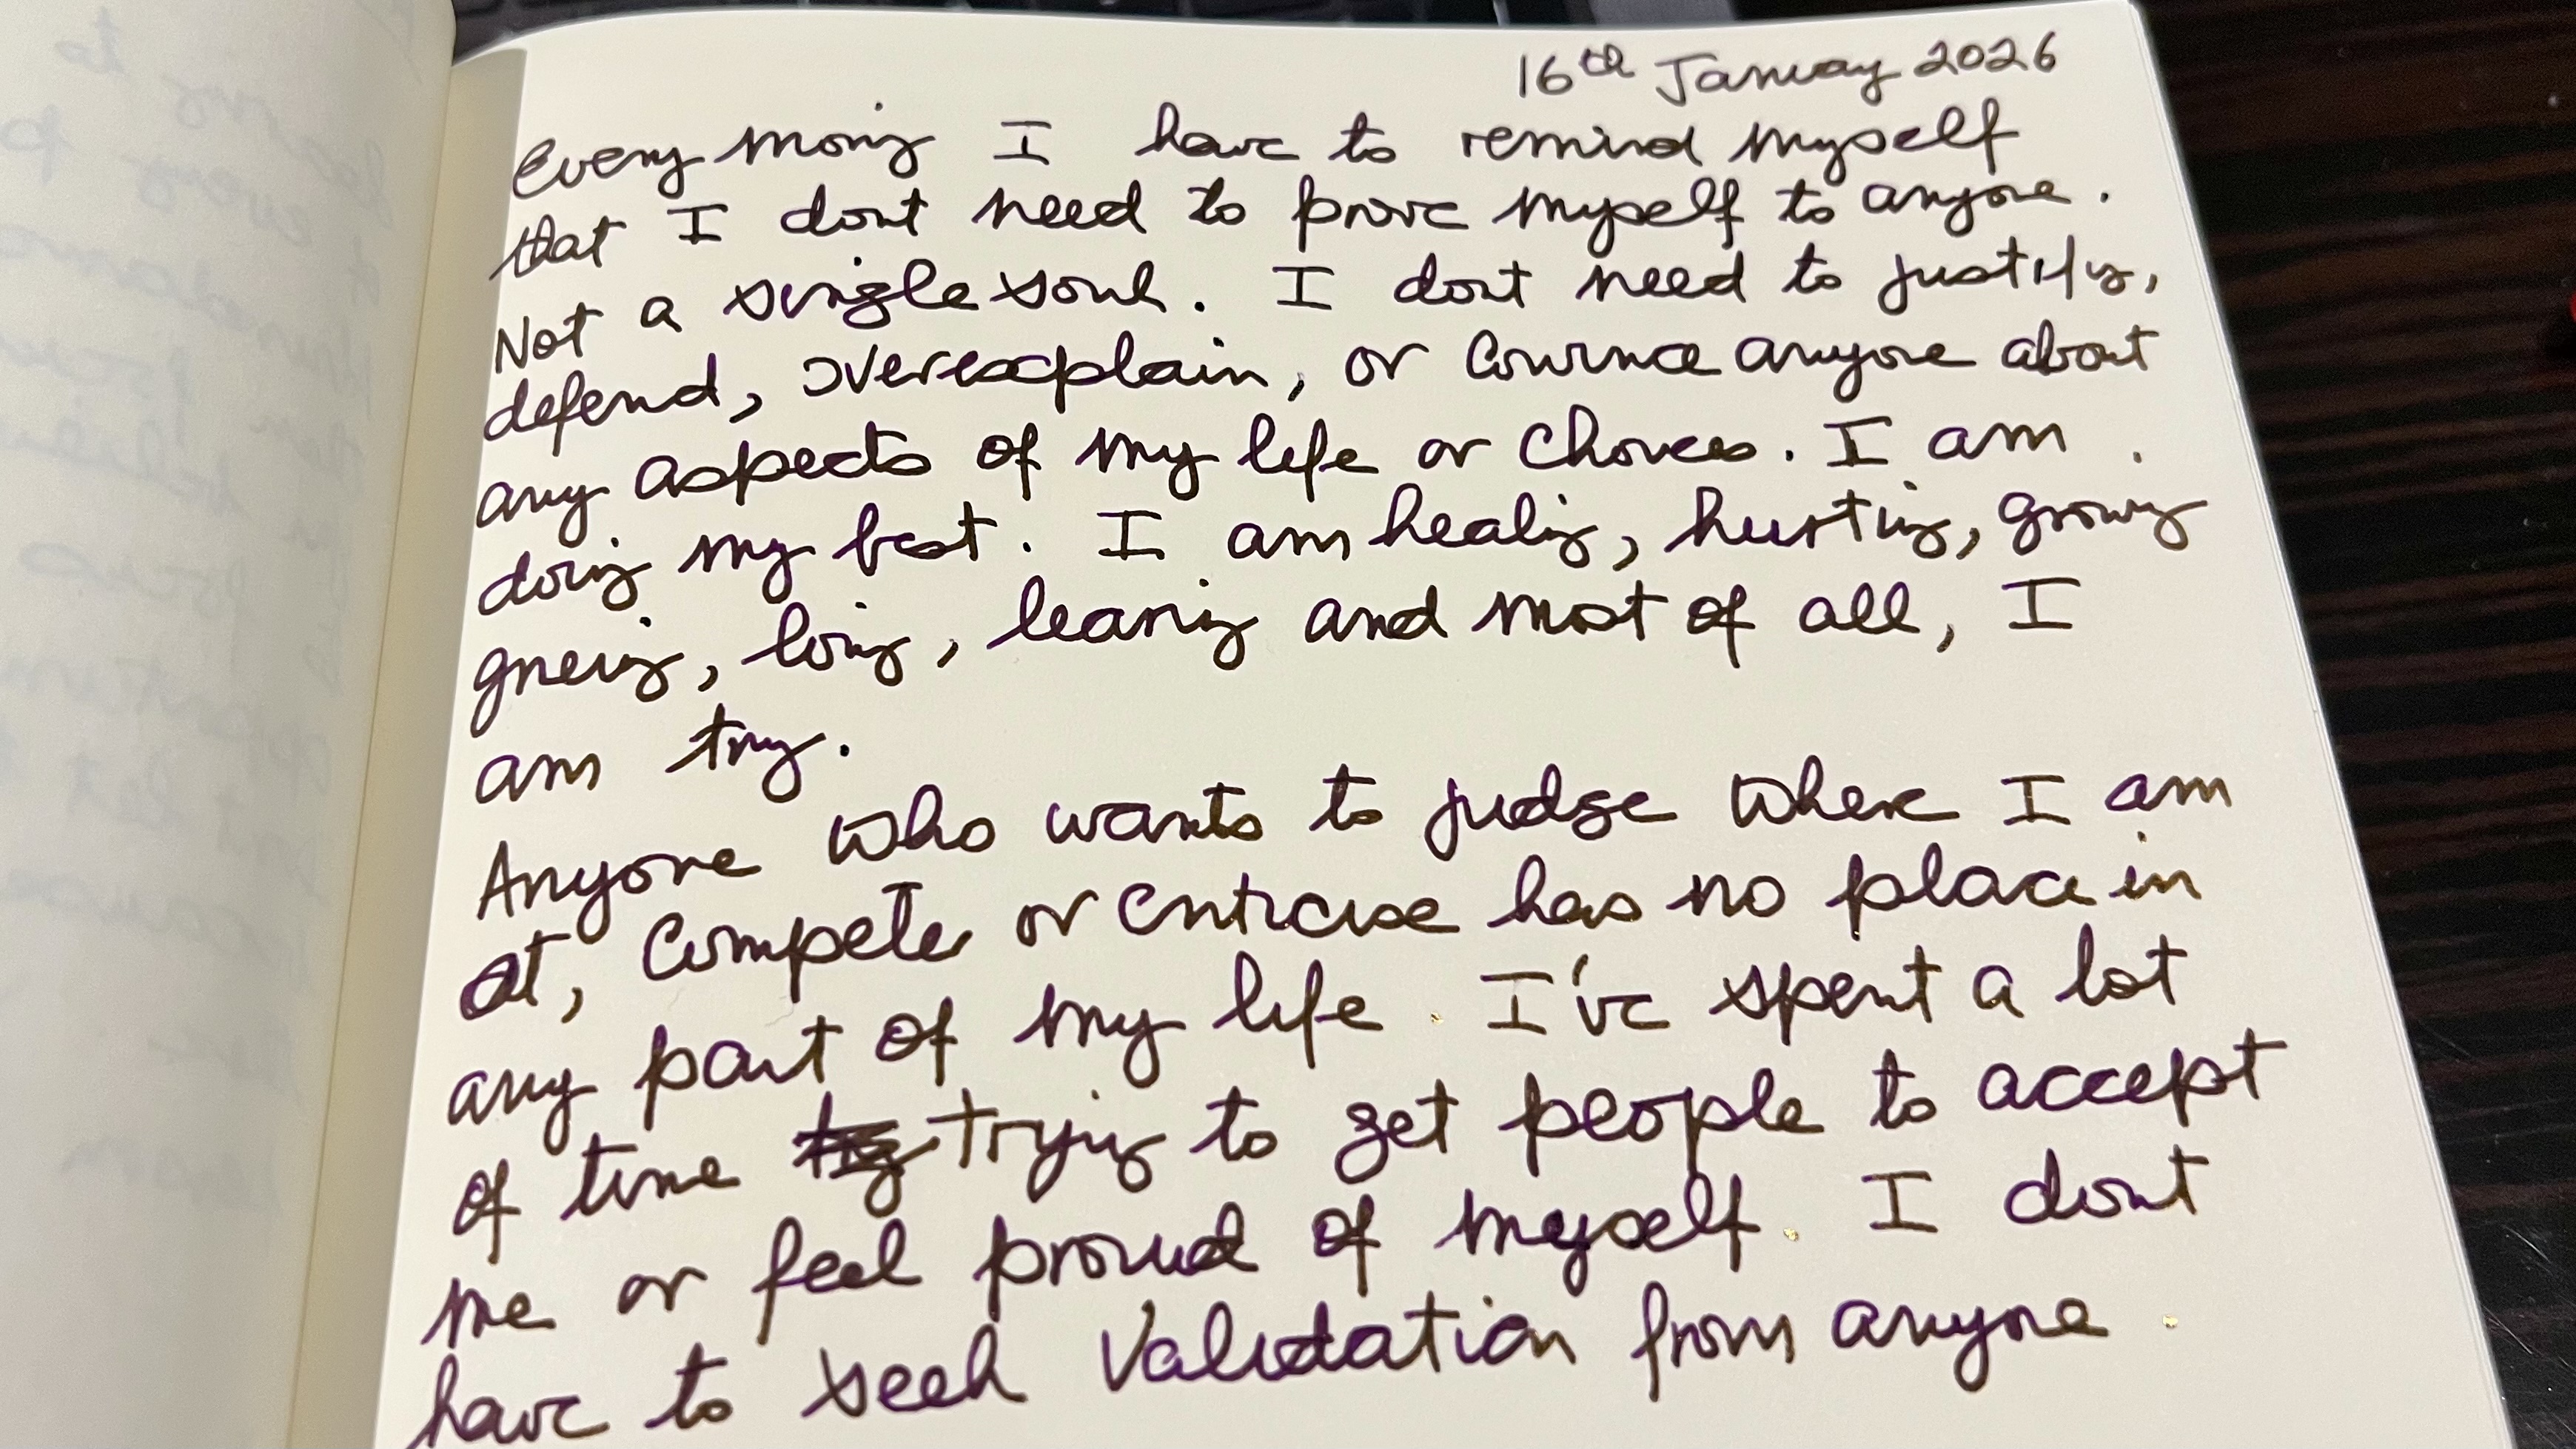 16th January 2026
Every morning I have to remind myself
that I dont need to prove myself to anyone.
Not a single soul. I dont need to justify,
defend, overexplain, or convince anyone about
any aspects of my life or choices. I am
doing my best. I am healing, hurting, growing
grieving, loving, learning and most of all, I
am trying.
Anyone who wants to judge where I am
at, compete or criticise has no place in
any part of my life. I've spent a lot
of time trying to get people to accept
me or feel proud of myself. I dont
have to seek validation from anyone.